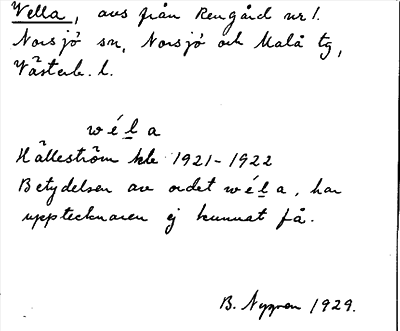 Vella, avs från Rengård nr 1.
Norsjö sn, Norsjö och Malå tg,
Västerb. l.
wéla
Hälleström 1921-1922
Betydelsen av ordet wéla, har
upptecknaren ej kunnat få.
B. Nygren 1929.